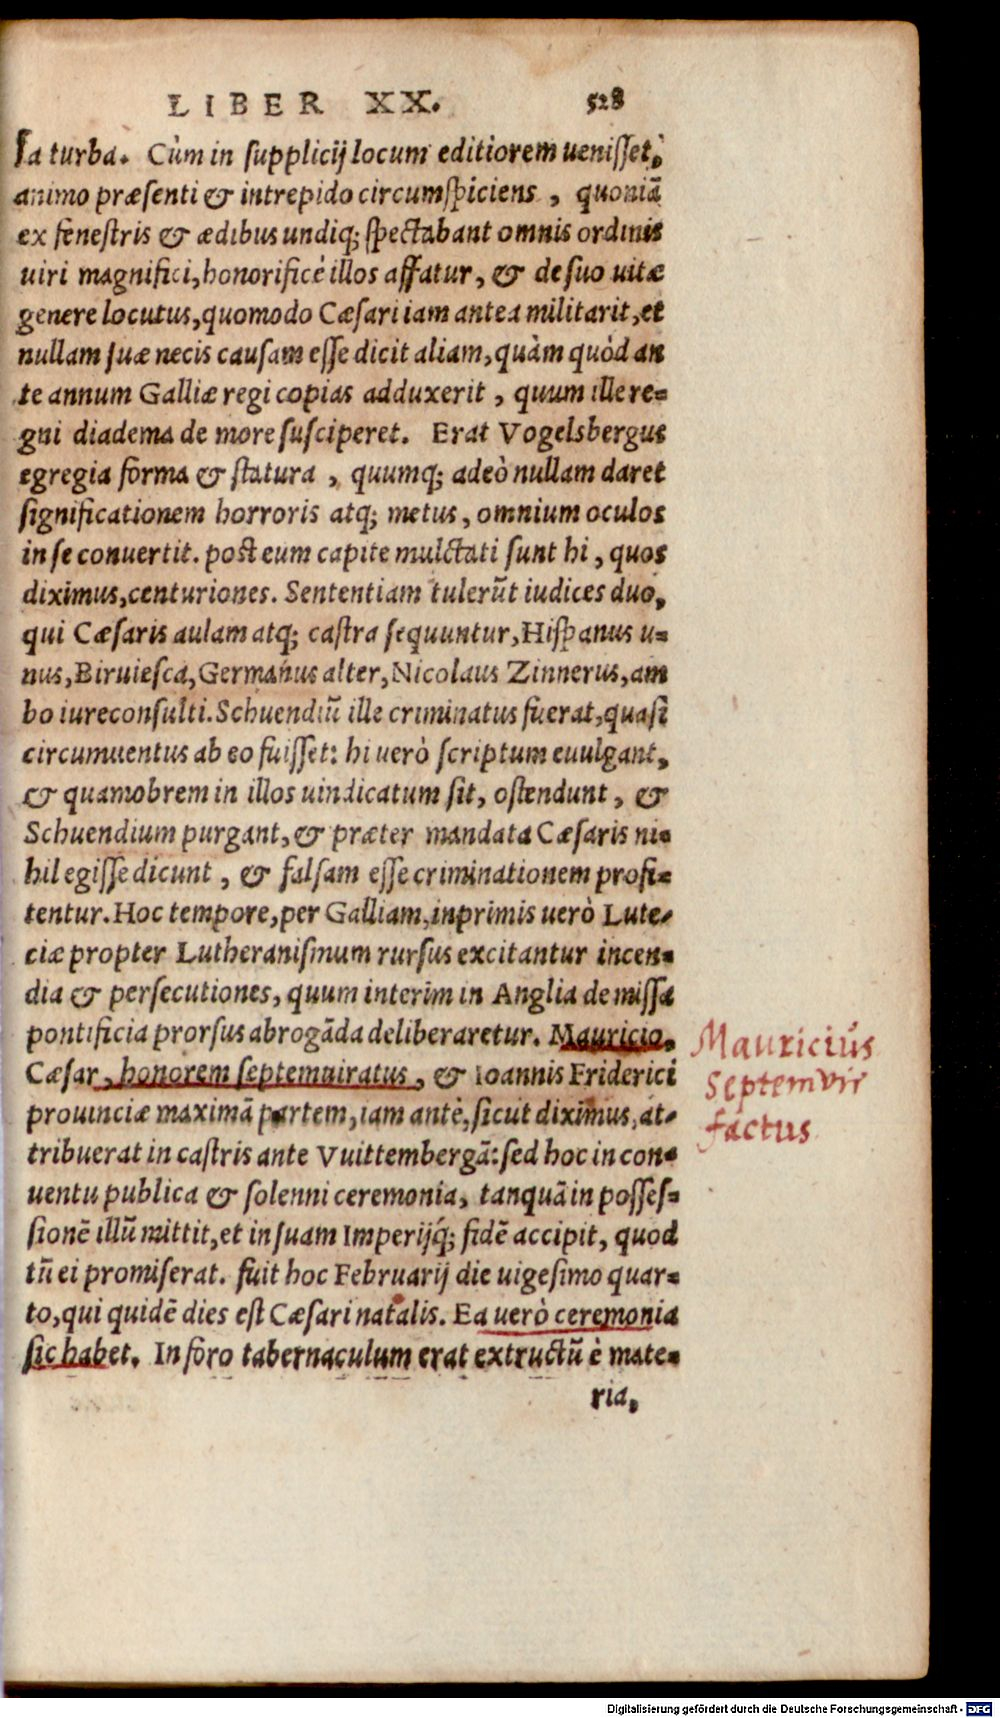 LIBER XX. 528
sa turba. Cùm in supplicij locum editiorem uenisset,
animo præsenti & intrepido circumspiciens, quoniã
ex fenestris & ædibus undiq; spectabant omnis ordinis
uiri magnifici, honorificè illos affatur, & de suo uitæ
genere locutus, quomodo Cæsari iam antea militarit, et
nullam suæ necis causam esse dicit aliam, quàm quòd an
te annum Galliæ regi copias adduxerit, quum ille re-
gni diadema de more susciperet. Erat Vogelsbergus
egregia forma & statura, quumq; adeò nullam daret
significationem horroris atq; metus, omnium oculos
in se conuertit. post eum capite mulctati sunt hi, quos
diximus, centuriones. Sententiam tulerũt iudices duo,
qui Cæsaris aulam atq; castra sequuntur, Hispanus u-
nus, Biruiesca, Germanus alter, Nicolaus Zinnerus, am
bo iureconsulti. Schuendiũ ille criminatus fuerat, quasi
circumuentus ab eo fuisset: hi uerò scriptum euulgant,
& quamobrem in illos uindicatum sit, ostendunt, &
Schuendium purgant, & præter mandata Cæsaris ni-
hil egisse dicunt, & falsam esse criminationem profi-
tentur. Hoc tempore, per Galliam, inprimis uerò Lute-
ciæ propter Lutheranismum rursus excitantur incen-
dia & persecutiones, quum interim in Anglia de missa
pontificia prorsus abrogãda deliberaretur. Mauricio,
Cæsar, honorem septemuiratus, & Ioannis Friderici
prouinciæ maximã partem, iam antè, sicut diximus, at-
tribuerat in castris ante Vuittembergã: sed hoc in con-
uentu publica & solenni ceremonia, tanquã in posses-
sionẽ illũ mittit, et in suam Imperijq́; fidẽ accipit, quod
tũ ei promiserat. fuit hoc Februarij die uigesimo quar-
to, qui quidẽ dies est Cæsari natalis. Ea uerò ceremonia
sic habet. In foro tabernaculum erat extructũ è mate-
ria,
Mauriciús
Septemvir
factus
Digitalisierung gefördert durch die Deutsche Forschungsgemeinschaft - DFG